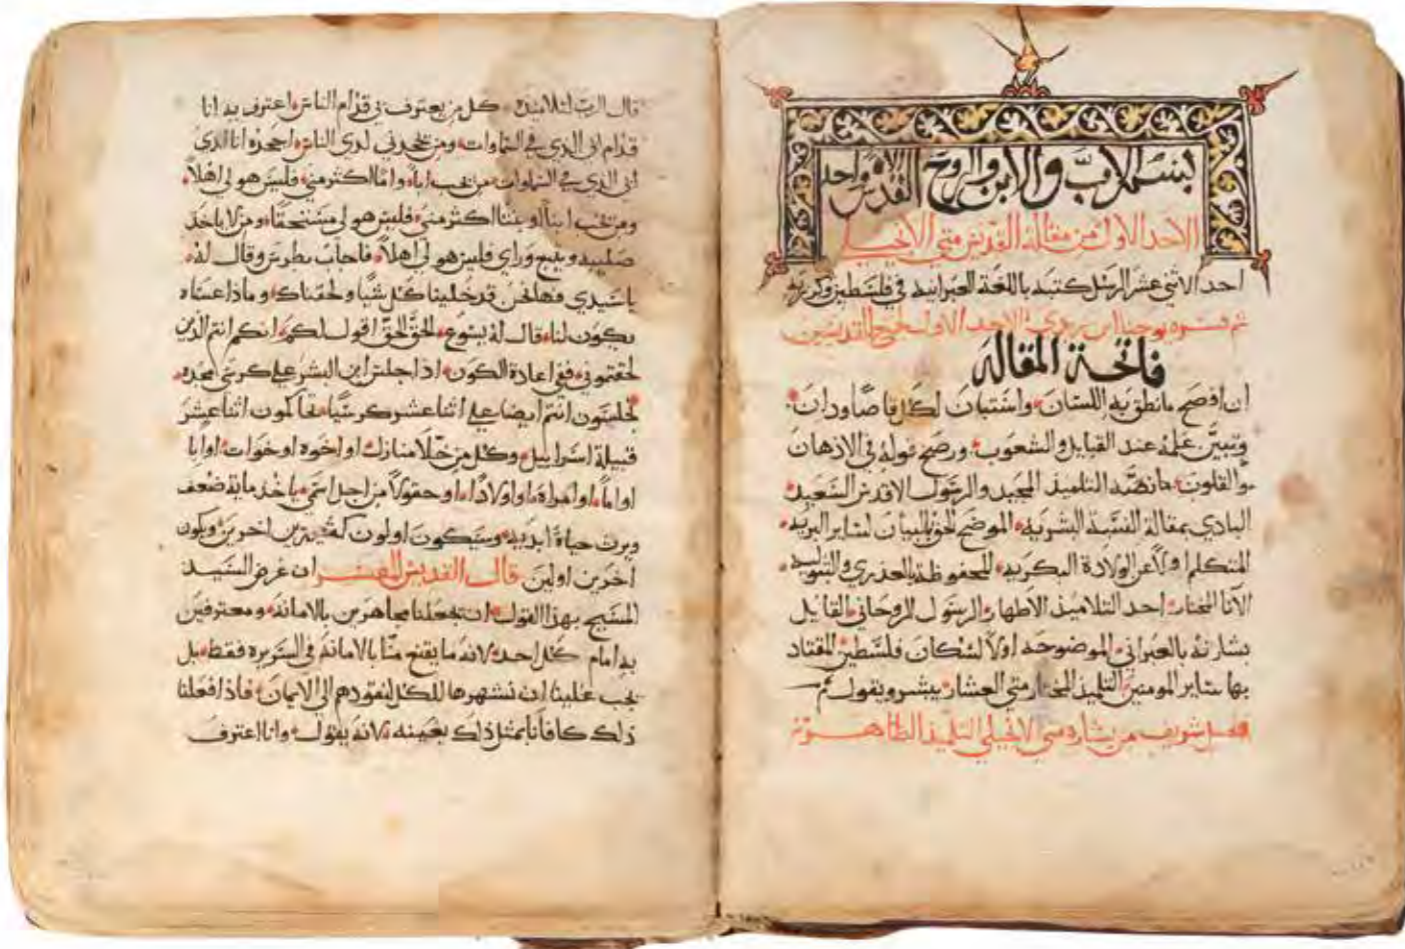 بسم الاب والابن والروح القدس الاه واحد
الاحد الاول من مقالة القديس متى الانجيلي
احد الاثنى عشر الرسل كتبه باللغة العبرانيه في فلسطين وكرز به
ثم فسره يوحنا ابن زبدي الاحد الاول لجميع القديسين
فاتحة المقالة
ان افصح مانطق به اللسان واستبان لكل قاص ودان
وتبين علمه عند القبايل والشعوب ورضح قوله في الاذهان
والقلوب مانصه التلميذ المجيد والرسول الاقدس السعيد
البادي بمقالة النسبة البشريه الموضح الحق بالبيان لساير البريه
المتكلم اولا عن الولادة البكريه المحفوظة بالعذري والتوليد
الانا المختار احد التلاميذ الاطهار والرسول الروحاني القايل
بشارته بالعبراني الموضوعه اولا لسكان فلسطين المقتاد
بها ساير المومنين التلميذ المختار متى العشار يبشر ويقول
فصل شريف من بشارة متى الانجيلي التلميذ الطاهر
قال الرب لتلاميذه كل من يعترف بي قدام الناس اعترف به انا
قدام ابي الذي في السماوات ومن يجحدني لدى الناس اجحده انا لدى
ابي الذي في السماوات من يحب اباً واماً اكثر مني فليس هو لي اهلاً
ومن يحب ابناً او بنتاً اكثر مني فليس هو لي مستحقاً ومن لا ياخذ
صليبه ويتبع وراي فليس هو لي اهلاً فاجاب بطرس وقال له
ياسيدي فهانحن قد خلينا كل شيا ولحقناك وماذا عساه
يكون لنا قال له يسوع الحق الحق اقول لكم انكم انتم الذين
لحقتموني ففي اعادة الكون اذا جلس ابن البشر على كرسي مجده
تجلسون انتم ايضا على اثنا عشر كرسيا تحاكمون اثنا عشر
قبيلة اسراييل وكل من خلا منازل او اخوه او خوات او ابا
او اما او امراه او اولادا او حقولا من اجل اسمي ياخذ ماية ضعف
ويرث حياة ابديه وسيكون اولون كثيرين اخرين ويكون
اخرين اولين قال القديس المفسر ان غرض السيد
المسيح بهذا القول ان يجعلنا مجاهرين بالامانه ومعترفين
به امام كل احد لانه ما يقنع منا بالامانه في السريره فقط بل
يجب علينا ان نشهرها للكل لنقودهم الى الايمان فاذا فعلنا
ذلك كافانا بمثل ذلك بعينه لانه يقول وانا اعترف